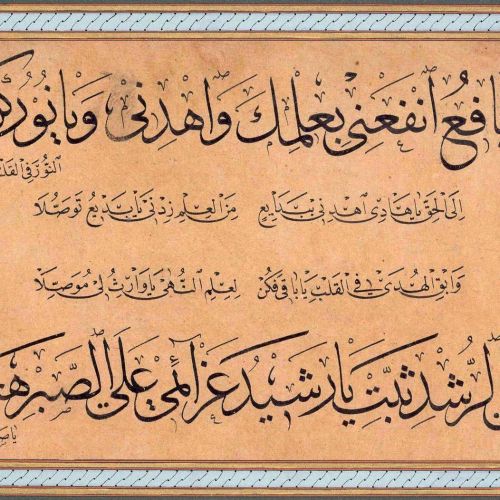 نافع انفعني بعلمك واهدني ويا نور كن
النور في القلب
الى الحق يا هادي اهدني ببدايع من العلم زدني يا بديع توصلا
وابق الهدى في القلب يا باقي فكن لعلم النهى يا وارث لي موصلا
الرشد ثبت يا رشيد عزائمي على الصبر
يا